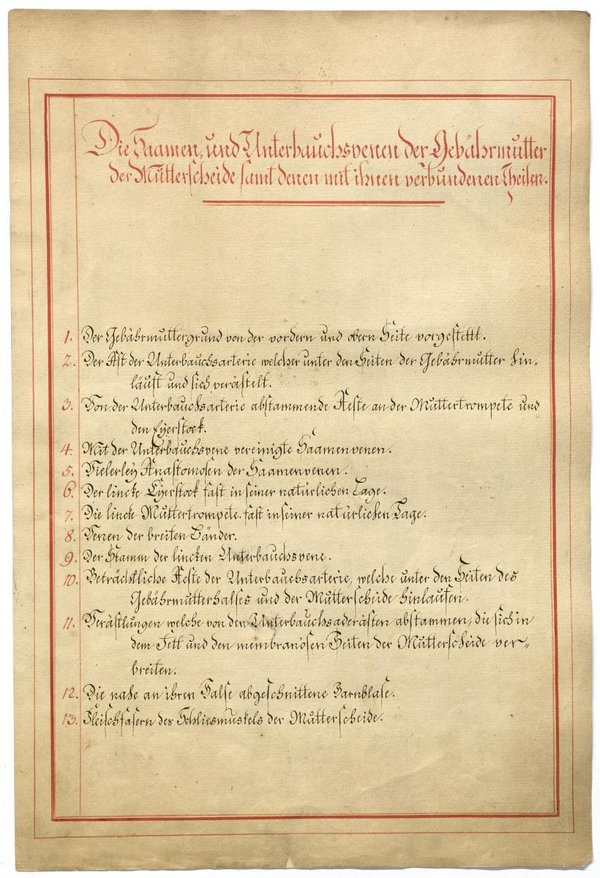 Die Saamen, und Unterbauchsvenen der Gebährmutter
der Mutterscheide samt denen mit ihnen verbundenen Theilen.
1. Der Gebährmuttergrund von der vordern und obern Seite vorgestellt.
2. Der Ast der Unterbauchsarterie welcher unter den Seiten der Gebährmutter hin,
läuft und sich verästelt.
3. Von der Unterbauchsarterie abstammende Aeste an der Muttertrompete und
den Eyerstock.
4. Mit der Unterbauchsvene vereinigte Saamenvenen.
5. Vielerley Anastomosen der Saamenvenen.
6. Der lincke Eyerstock fast in seiner natürlichen Lage.
7. Die lincke Muttertrompete fast in seiner natürlichen Lage.
8. Venen der breiten Bänder.
9. Der Stamm der lincken Unterbauchsvene.
10. Beträchtliche Aeste der Unterbauchsarterie, welche unter den Seiten des
Gebährmutterhalses und der Mutterscheide hinlaufen.
11. Verästlungen welche von den Unterbauchsaderästen abstammen, die sich in
dem Fett und den membranösen Seiten der Mutterscheide ver-
breiten.
12. Die nahe an ihren Halse abgeschnittene Harnblase.
13. Fleischfasern des Schliesmuskels der Mutterscheide.